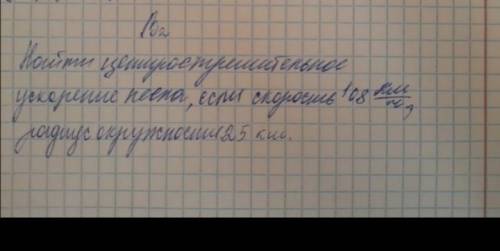 В2
Найти центростремительное
ускорение тела, если скорость 108 км/ч,
радиус окружности 25 км.